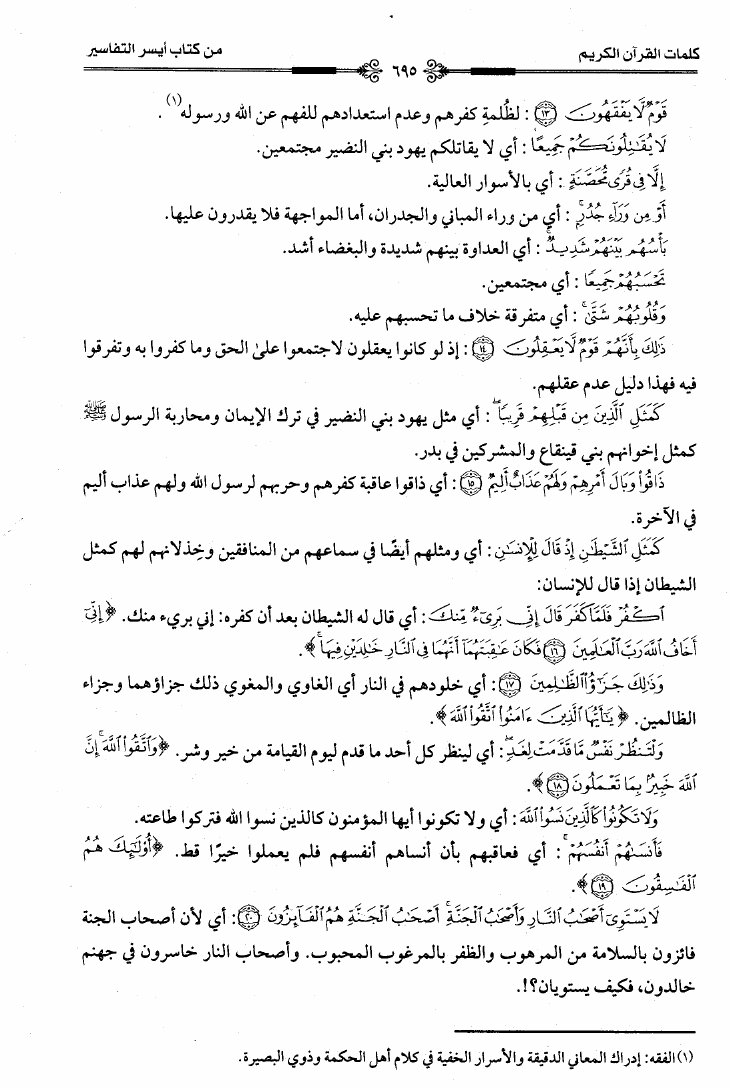 كلمات القرآن الكريم
٦٩٥
من كتاب أيسر التفاسير
قَوْمٌ لَّا يَفْقَهُونَ ۝١٣ : لظُلمةِ كفرهم وعدم استعدادهم للفهم عن الله ورسوله(١).
لَا يُقَاتِلُونَكُمْ جَمِيعًا : أي لا يقاتلكم يهود بني النضير مجتمعين.
إِلَّا فِي قُرًى مُّحَصَّنَةٍ : أي بالأسوار العالية.
أَوْ مِن وَرَآءِ جُدُرٍۭ : أي من وراء المباني والجدران، أما المواجهة فلا يقدرون عليها.
بَأْسُهُم بَيْنَهُمْ شَدِيدٌ : أي العداوة بينهم شديدة والبغضاء أشد.
تَحْسَبُهُمْ جَمِيعًا : أي مجتمعين.
وَقُلُوبُهُمْ شَتَّىٰ : أي متفرقة خلاف ما تحسبهم عليه.
ذَٰلِكَ بِأَنَّهُمْ قَوْمٌ لَّا يَعْقِلُونَ ۝١٤ : إذ لو كانوا يعقلون لاجتمعوا على الحق وما كفروا به وتفرقوا
فيه فهذا دليل عدم عقلهم.
كَمَثَلِ ٱلَّذِينَ مِن قَبْلِهِمْ قَرِيبًا : أي مثل يهود بني النضير في ترك الإيمان ومحاربة الرسول ﷺ
كمثل إخوانهم بني قينقاع والمشركين في بدر.
ذَاقُوا۟ وَبَالَ أَمْرِهِمْ وَلَهُمْ عَذَابٌ أَلِيمٌ ۝١٥ : أي ذاقوا عاقبة كفرهم وحربهم لرسول الله ولهم عذاب أليم
في الآخرة.
كَمَثَلِ ٱلشَّيْطَٰنِ إِذْ قَالَ لِلْإِنسَٰنِ : أي ومثلهم أيضًا في سماعهم من المنافقين وخِذلانهم لهم كمثل
الشيطان إذا قال للإنسان:
ٱكْفُرْ فَلَمَّا كَفَرَ قَالَ إِنِّى بَرِىٓءٌ مِّنكَ : أي قال له الشيطان بعد أن كفره: إني بريء منك. ﴿ إِنِّىٓ
أَخَافُ ٱللَّهَ رَبَّ ٱلْعَٰلَمِينَ ۝١٦ فَكَانَ عَٰقِبَتَهُمَآ أَنَّهُمَا فِى ٱلنَّارِ خَٰلِدَيْنِ فِيهَا ﴾.
وَذَٰلِكَ جَزَٰٓؤُا۟ ٱلظَّٰلِمِينَ ۝١٧ : أي خلودهم في النار أي الغاوي والمغوي ذلك جزاؤهما وجزاء
الظالمين. ﴿ يَٰٓأَيُّهَا ٱلَّذِينَ ءَامَنُوا۟ ٱتَّقُوا۟ ٱللَّهَ ﴾.
وَلْتَنظُرْ نَفْسٌ مَّا قَدَّمَتْ لِغَدٍ : أي لينظر كل أحد ما قدم ليوم القيامة من خير وشر. ﴿ وَٱتَّقُوا۟ ٱللَّهَ إِنَّ
ٱللَّهَ خَبِيرٌۢ بِمَا تَعْمَلُونَ ۝١٨ ﴾.
وَلَا تَكُونُوا۟ كَٱلَّذِينَ نَسُوا۟ ٱللَّهَ : أي ولا تكونوا أيها المؤمنون كالذين نسوا الله فتركوا طاعته.
فَأَنسَىٰهُمْ أَنفُسَهُمْ : أي فعاقبهم بأن أنساهم أنفسهم فلم يعملوا خيرًا قط. ﴿ أُو۟لَٰٓئِكَ هُمُ
ٱلْفَٰسِقُونَ ۝١٩ ﴾.
لَا يَسْتَوِىٓ أَصْحَٰبُ ٱلنَّارِ وَأَصْحَٰبُ ٱلْجَنَّةِ أَصْحَٰبُ ٱلْجَنَّةِ هُمُ ٱلْفَآئِزُونَ ۝٢٠ : أي لأن أصحاب الجنة
فائزون بالسلامة من المرهوب والظفر بالمرغوب المحبوب. وأصحاب النار خاسرون في جهنم
خالدون، فكيف يستويان؟!.
(١) الفقه: إدراك المعاني الدقيقة والأسرار الخفية في كلام أهل الحكمة وذوي البصيرة.